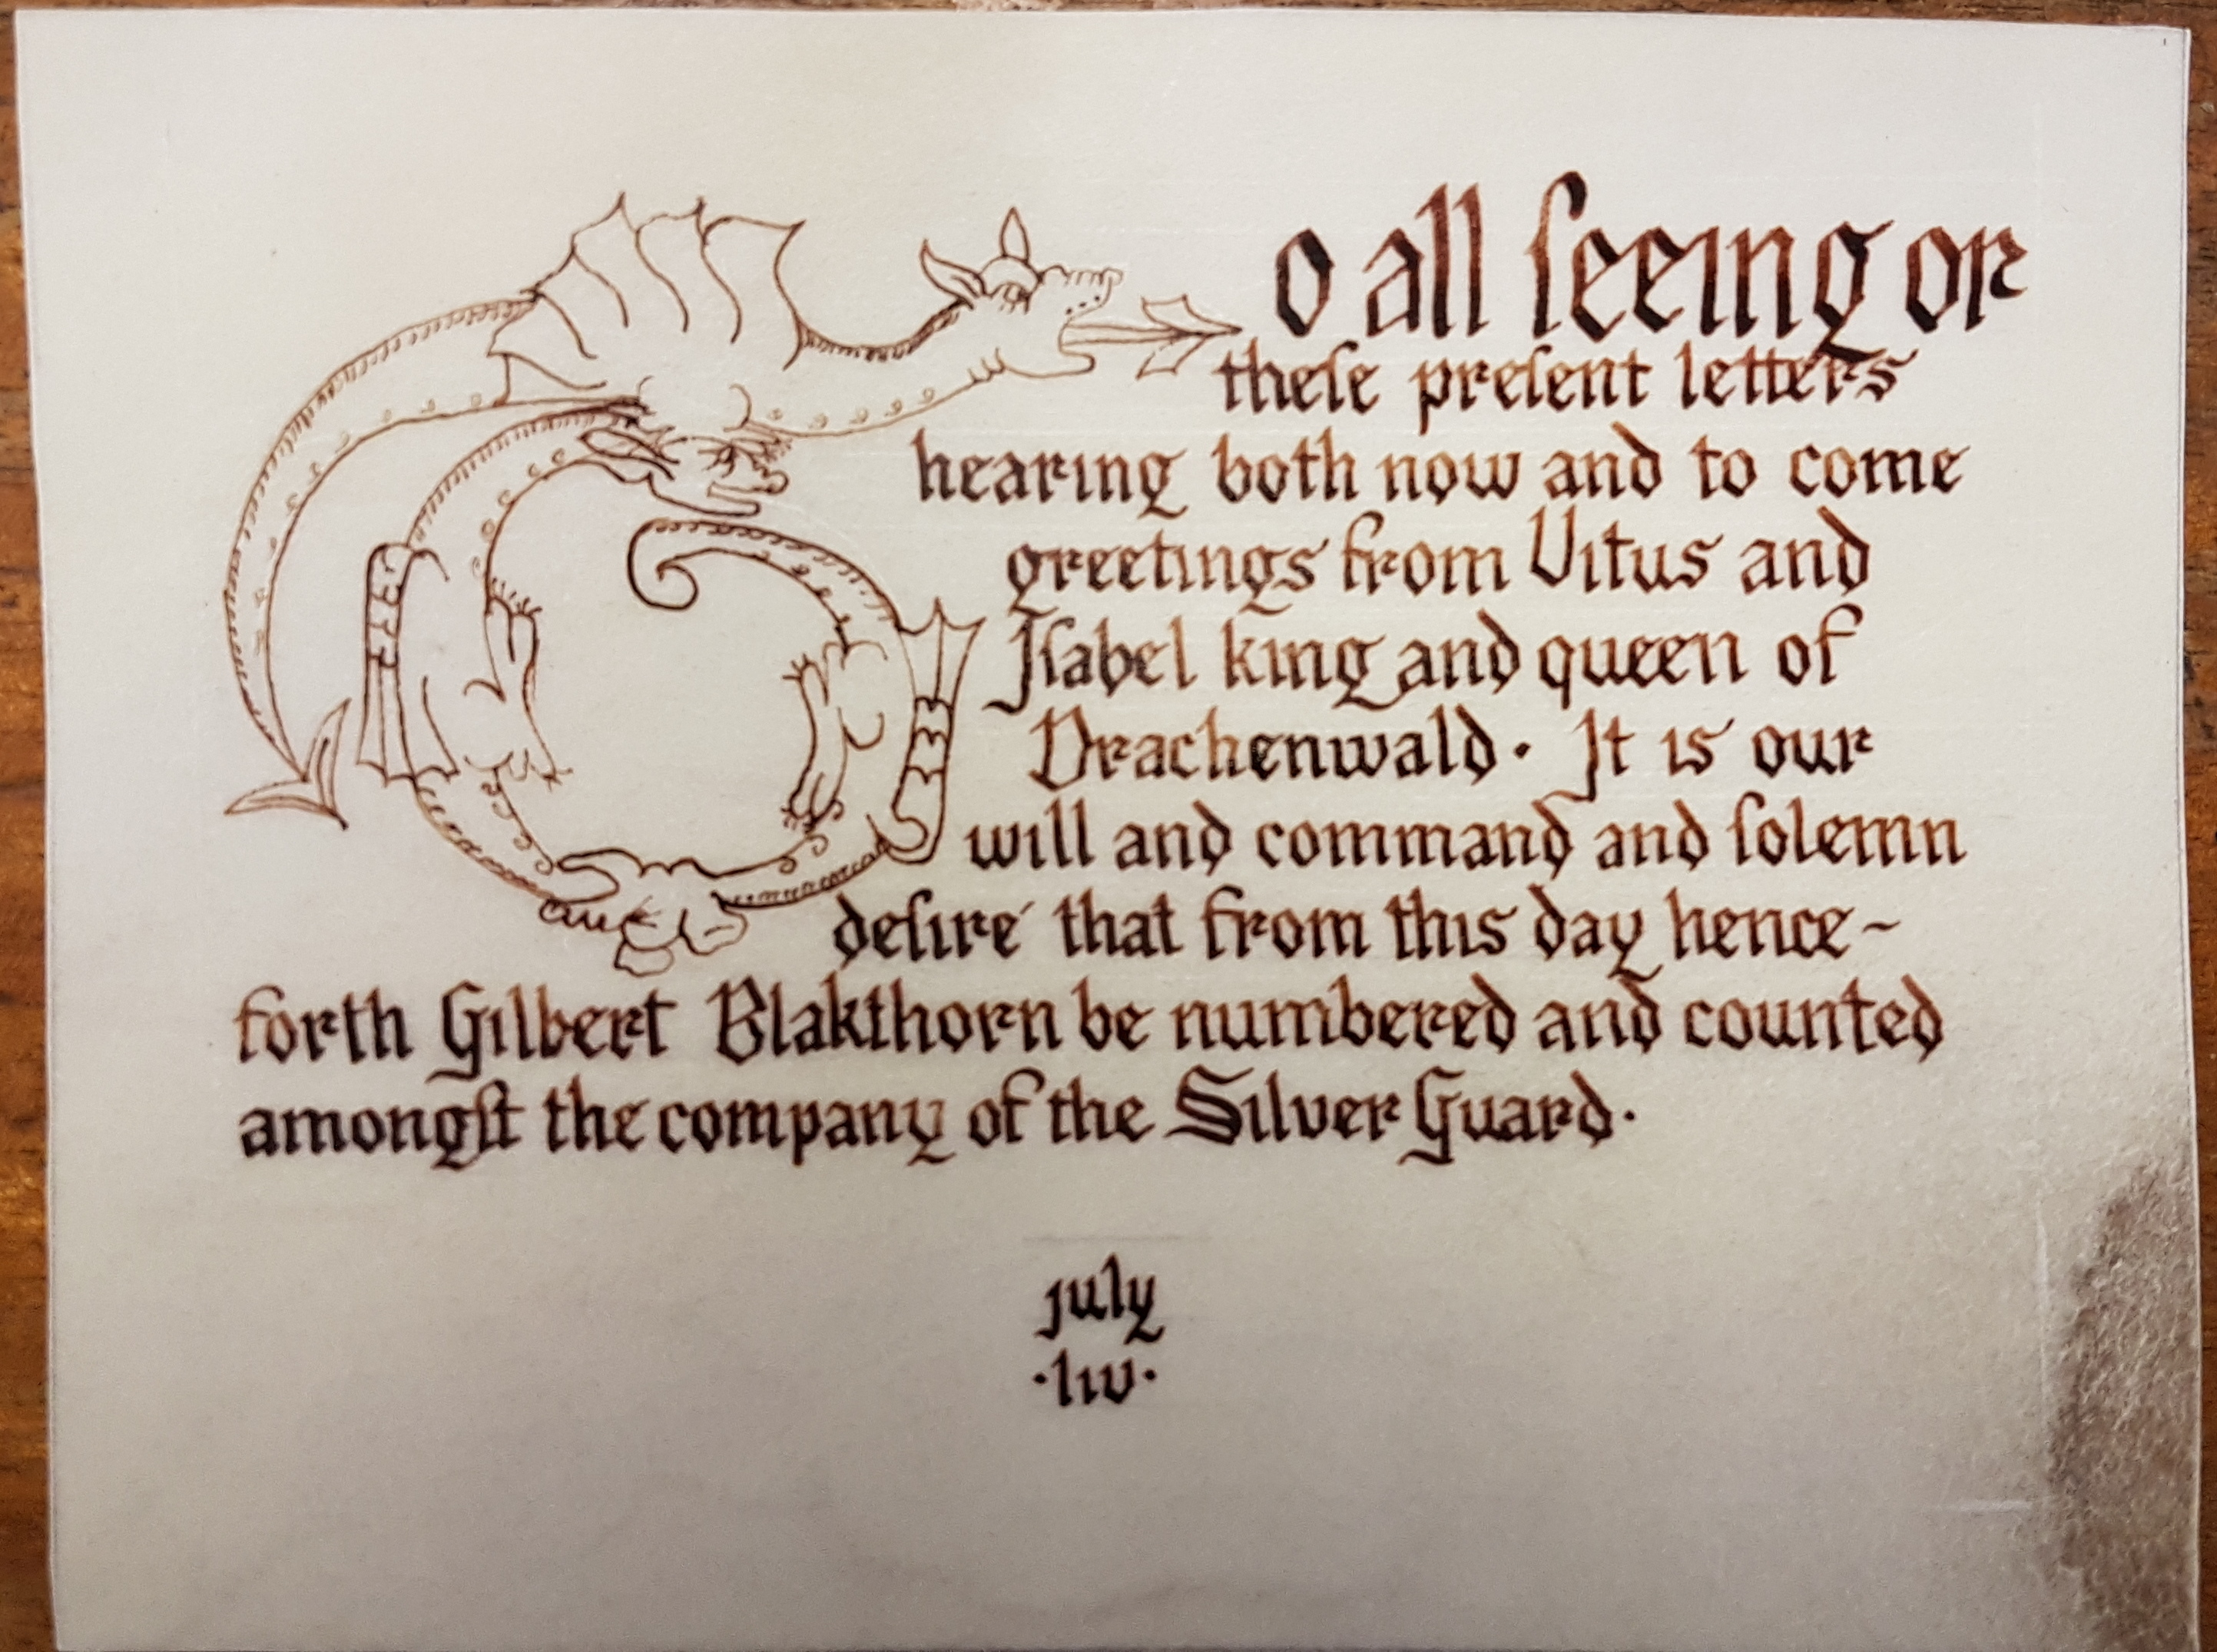 To all seeing or
these present letters
hearing both now and to come
greetings from Vitus and
Isabel king and queen of
Drachenwald. It is our
will and command and solemn
desire that from this day hence~
forth Gilbert Blakthorn be numbered and counted
amongst the company of the Silver Guard.
july
·liv·